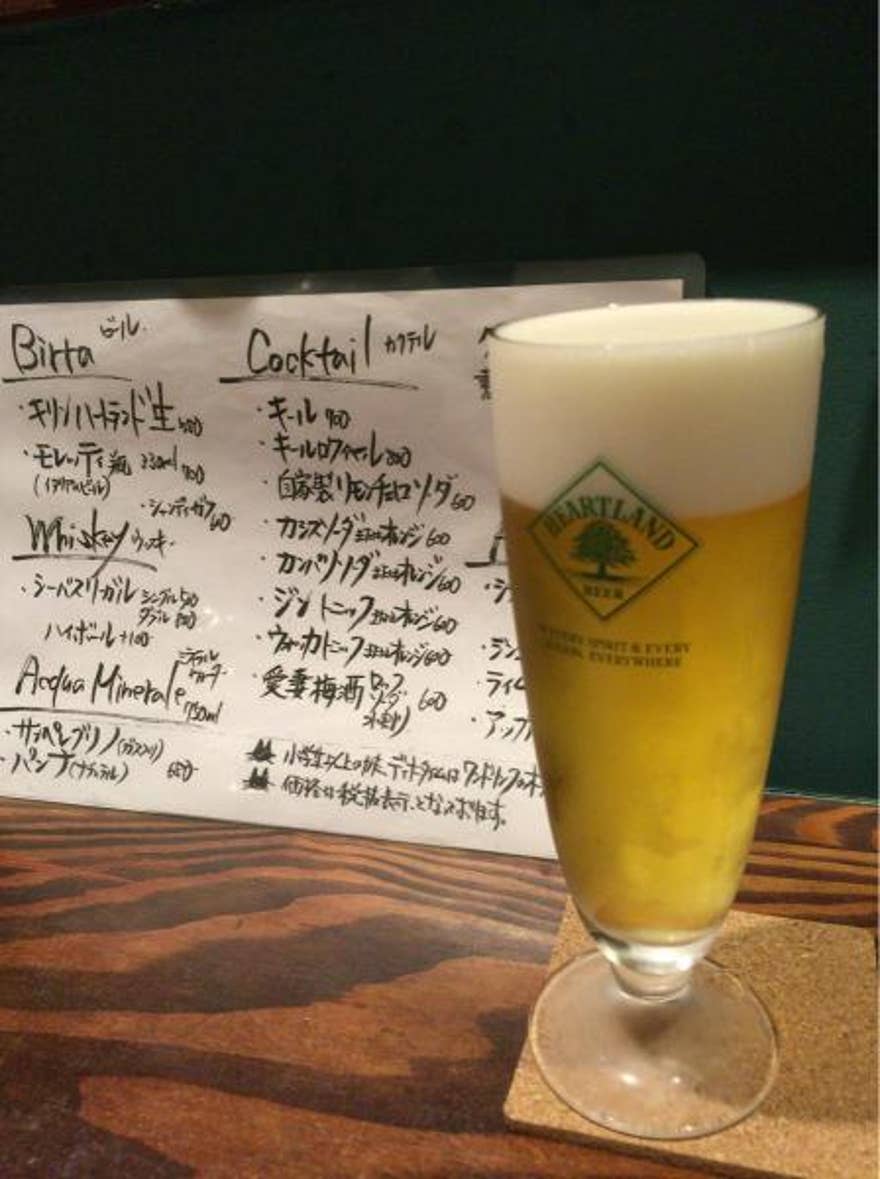 Birra ビール
・キリンハートランド生
・モレッティ瓶 330ml 700
(イタリアビール)
・シャンディガフ 600
Whiskey ウィスキー
・シーバスリーガル シングル 500
ダブル 800
ハイボール +100
Acqua Minerale ミネラル
ウォーター
750ml
・サンペレグリノ(ガス入り)
・パンナ(ナチュラル) 650
Cocktail カクテル
・キール 700
・キールロワイヤル 800
・自家製リモンチェロソーダ 600
・カシスソーダ またはオレンジ 600
・カンパリソーダ またはオレンジ 600
・ジントニック またはオレンジ 600
・ウォッカトニック またはオレンジ 600
・愛妻梅酒 ロック
ソーダ 600
水割り
小学生以上の方、ディナータイムはワンドリンクのオ
価格は税抜表示となっております。
・ライム
・アップ
HEARTLAND
BEER
SPIRIT & EVERY
EVERYWHERE